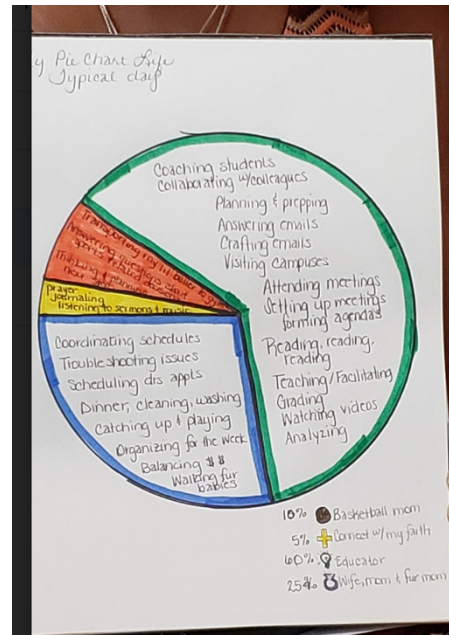 y Pie Chart Life
Typical day
Coaching students
Collaborating w/colleagues
Planning & prepping
Answering emails
Crafting emails
Visiting Campuses
Attending meetings
Setting up meetings
forming agendas
Reading, reading,
reading
Teaching/Facilitating
Grading
Watching videos
Analyzing
Transporting my lil baller to
Answering questions about
sports
Thinking & planning
next
prayer
journaling
listening to sermons & music
Coordinating schedules
Troubleshooting issues
Scheduling drs appts
Dinner, cleaning, washing
Catching up & playing
Organizing for the week
Balancing $$
Walking fur
babies
10% Basketball mom
5% Connect w/my faith
60% Educator
25% Wife, mom & fur mom